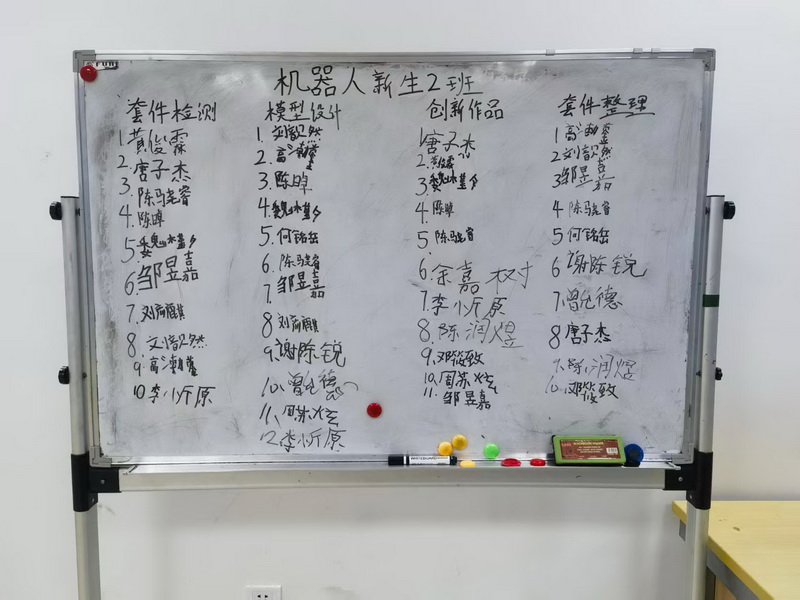 机器人新生2班
套件检测
1黄俊霖
2.唐子杰
3.陈马尧睿
4.陈晫
5.
6.邹昱嘉
7.刘
8.刘韵然
9.高
10.李小沂原
模型设计
1.刘韵然
2.高
3.陈晫
4.
5.何铭岳
6.陈马尧睿
7.邹昱嘉
8刘
9.谢陈锐
10.曾 德
11.周苏炫
12.李小沂原
创新作品
1唐子杰
2.
3.
4.陈晫
5.陈马尧睿
6.余嘉树
7.李小沂原
8.陈润煜
9.邓筱致
10.周苏炫
11.邹昱嘉
套件整理
1高
2刘韵然
3邹昱嘉
4陈马尧睿
5何铭岳
6谢陈锐
7.曾 德
8唐子杰
9.陈润煜
10.邓筱致